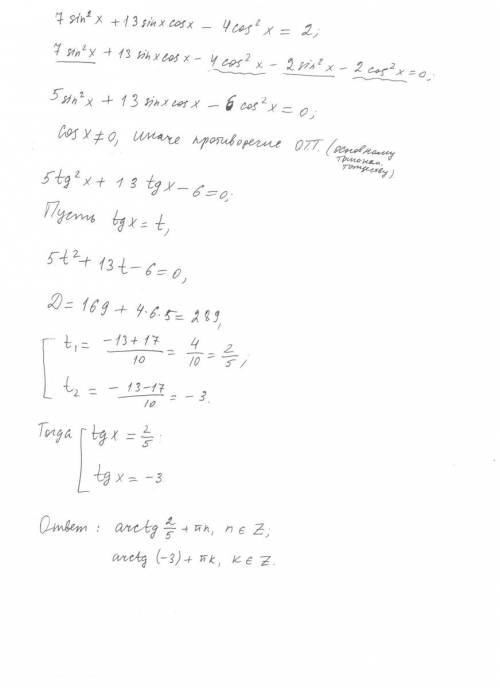 7 sin²x + 13 sin x cos x − 4 cos²x = 2;
7 sin²x + 13 sin x cos x − 4 cos²x − 2 sin²x − 2 cos²x = 0;
5 sin²x + 13 sin x cos x − 6 cos²x = 0;
Cos x ≠ 0, иначе противоречие ОТТ. (основному
тригоном.
тождеству)
5 tg²x + 13 tg x − 6 = 0;
Пусть tg x = t,
5t² + 13t − 6 = 0,
D = 169 + 4·6·5 = 289,
t₁ = (−13 + 17)/10 = 4/10 = 2/5;
t₂ = −(13−17)/10 = −3.
Тогда [ tg x = 2/5;
tg x = −3
Ответ: arctg 2/5 + πn, n ∈ Z;
arctg (−3) + πk, k ∈ Z.